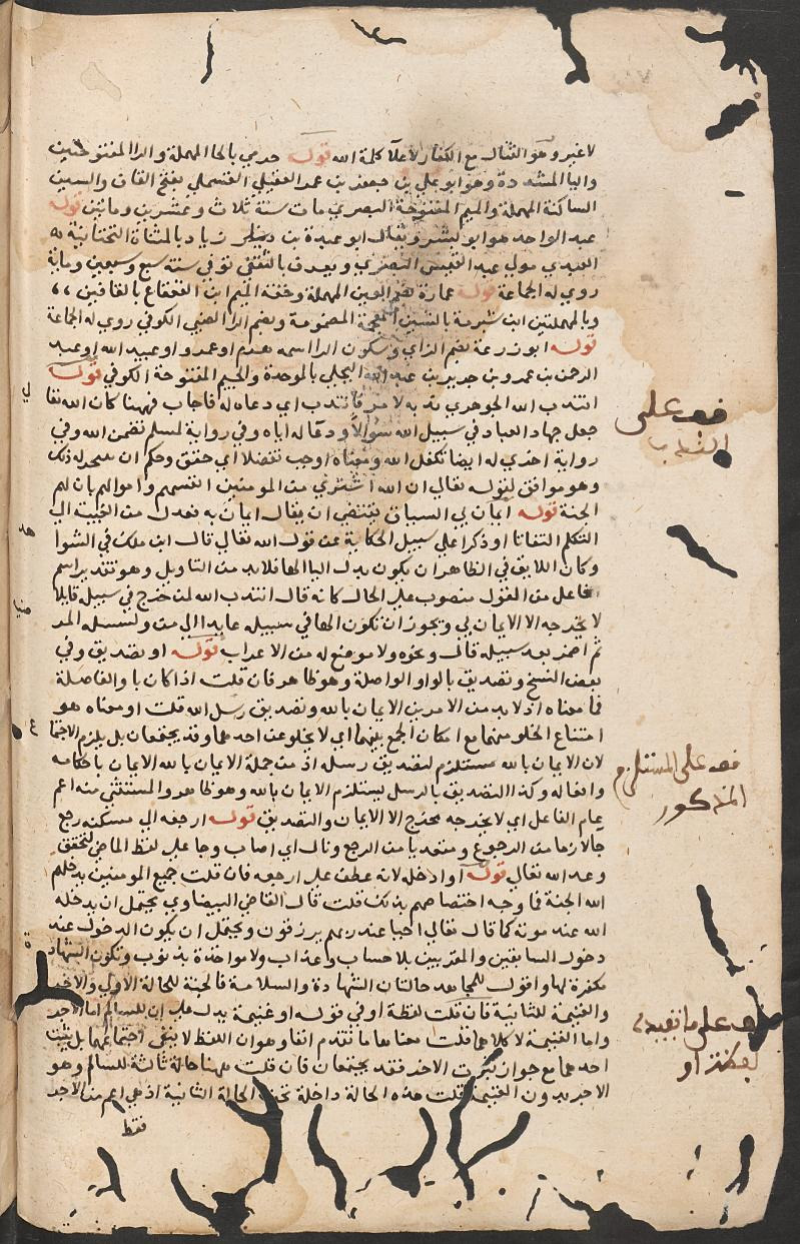 لا غير وهو القتال مع الكفار لاعلا كلمة الله قوله حرمي بالحا المهملة والرا المفتوحتين
واليا المشددة وهو ابو علي بن حفص بن عمر العقيلي القسملي بفتح القاف والسين
الساكنة المهملة والميم المفتوحة البصري مات سنة ثلاث وعشرين وماتين قوله
عبد الواحد هو ابو بشر ويقال ابو عبيدة بن زياد بالمثناة التحتانية
العبدي مولي عبد القيس البصري ويعرف بالثقفي توفي سنة سبع وسبعين وماية
روي له الجماعة قوله عمارة بضم العين المهملة وخفة الميم ابن القعقاع بالقافين
وبالمهملتين ابن شبرمة بالشين المعجمة المضمومة وبضم الرا الضبي الكوفي روي له الجماعة
قوله ابو زرعة بضم الزاي وسكون الرا اسمه هرم او عمرو او عبيد الله او عبد
الرحمن بن عمرو بن جرير بن عبد الله البجلي بالموحدة والجيم المفتوحة الكوفي قوله
انتدب الله الجوهري ندبه لامر فانتدب اي دعاه له فاجاب فههنا كان الله تعا
جعل جهاد العباد في سبيل الله سوالا ودعا له اياه وفي رواية لمسلم تضمن الله وفي
رواية اخري له ايضا تكفل الله ومعناه اوجب تفضلا اي حقق وحكم ان ينجز له ذلك
وهو موافق لقوله تعالي ان الله اشتري من المومنين انفسهم واموالهم بان لهم
الجنة قوله ايمان بي السياق يقتضي ان يقال ايمان به فعدل من الغيبة الي
التكلم التفاتا او ذكرا علي سبيل الحكاية عن قول الله تعالي قال ابن ملك في الشوا
وكان اللايق في الظاهر ان يكون بدل اليا الها فلا بد من التاويل وهو تقدير اسم
فاعل من القول منصوب علي الحال كانه قال انتدب الله لمن خرج في سبيله قايلا
لا يخرجه الا الايمان بي ويجوز ان تكون الها في سبيله عايدا الي من
ثم اضمر بعد سبيله قال ونحوه ولا موضع له من الاعراب قوله او تصديق وفي
بعض النسخ وتصديق بالواو الواصلة وهو ظاهر فان قلت اذا كان باو الفاصلة
فما معناه اذ لا بد من الامرين الايمان بالله وتصديق رسل الله قلت او معناه هو
امتناع الخلو منهما مع امكان الجمع بينهما اي لا يخلو عن احدهما وقد يجتمعان بل يلزم الاجتما
لان الايمان بالله مستلزم لتصديق رسله اذ من جملة الايمان بالله الايمان باحكامه
وافعاله وكذا التصديق بالرسل يستلزم الايمان بالله وهو ظاهر والمستثني منه اعم
عام الفاعل اي لا يخرجه مخرج الا الايمان والتصديق قوله ارجعه الي مسكنه رجع
جا لازما من الرجوع ومتعديا من الرجع ونال اي اصاب وجا علي لفظ الماضي لتحقق
وعد الله تعالي قوله او ادخله لانه عطف علي ارجعه فان قلت جميع المومنين يدخلهم
الله الجنة فما وجه اختصاصهم بذلك قلت قال القاضي البيضاوي يحتمل ان يدخله
الله عند موته كما قال تعالي احيا عند ربهم يرزقون ويحتمل ان يكون الدخول عند
دخول السابقين والمقربين بلا حساب وعذاب ولا مواخذة بذنوب وتكون الشهادة
مكفرة لها واقول للمجاهد حالتان الشهادة والسلامة فالجنة للحالة الاولي والاجر
والغنيمة للثانية فان قلت لفظة او في قوله او غنيمة يدل علي ان للسالم اما الاجر
واما الغنيمة لا كلاهما قلت معناها ما تقدم انفا وهو ان اللفظ لا ينفي اجتماعهما بل يثبت
احدهما مع جواز ثبوت الاخر فقد يجتمعان فان قلت ههنا حالة ثالثة للسالم وهو
الاجر بدون الغنيمة قلت هذه الحالة داخلة تحت الحالة الثانية اذ هي اعم من الاجر
فقط
قف على
انتداب
قف على المستلزم
المذكور
قف على ما تفيده
لفظة او